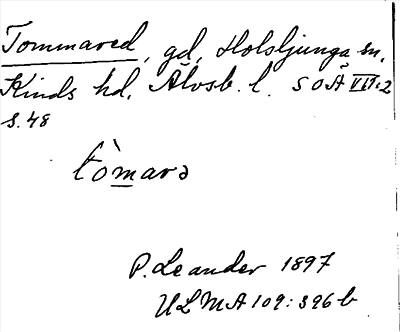 Tommared, gd, Holsljunga sn,
Kinds hd, Älvsb. l. SOÄ VII:2
S. 48
tòmarə
P. Leander 1897
ULMA 109:396 b